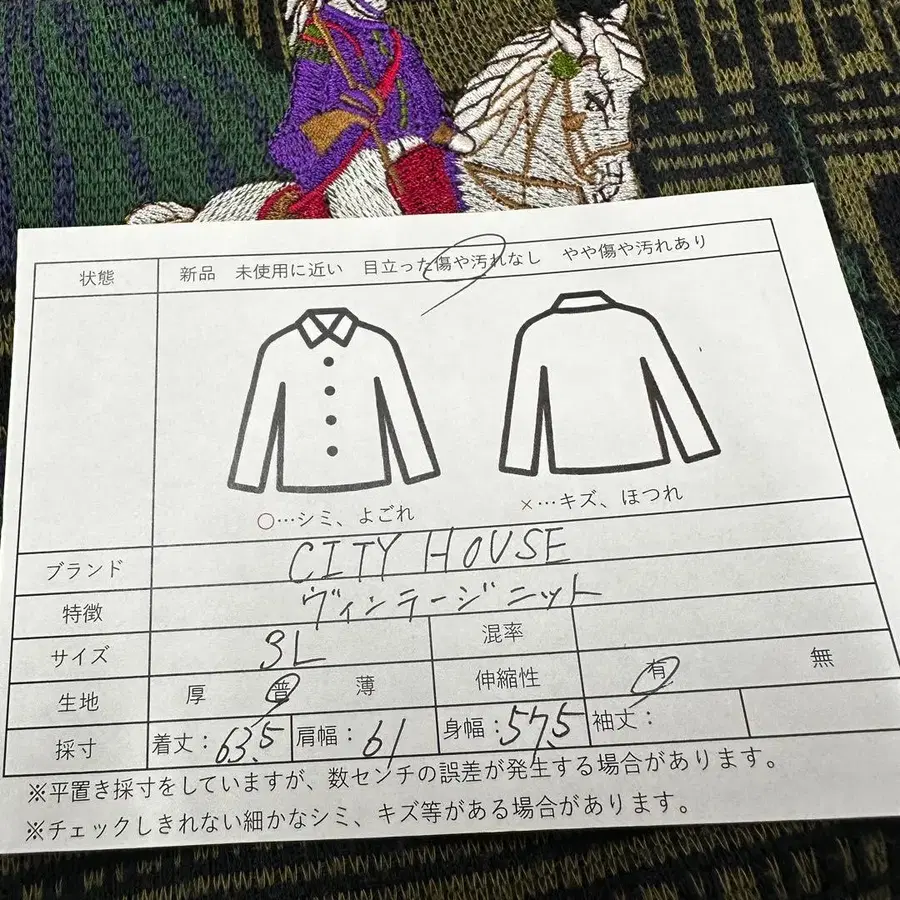 状態 新品 未使用に近い 目立った傷や汚れなし やや傷や汚れあり
○…シミ、よごれ ×…キズ、ほつれ
ブランド CITY HOUSE
特徴 ヴィンテージニット
サイズ 3L 混率
生地 厚 普 薄 伸縮性 有 無
採寸 着丈：63.5 肩幅：61 身幅：57.5 袖丈：
※平置き採寸をしていますが、数センチの誤差が発生する場合があります。
※チェックしきれない細かなシミ、キズ等がある場合があります。